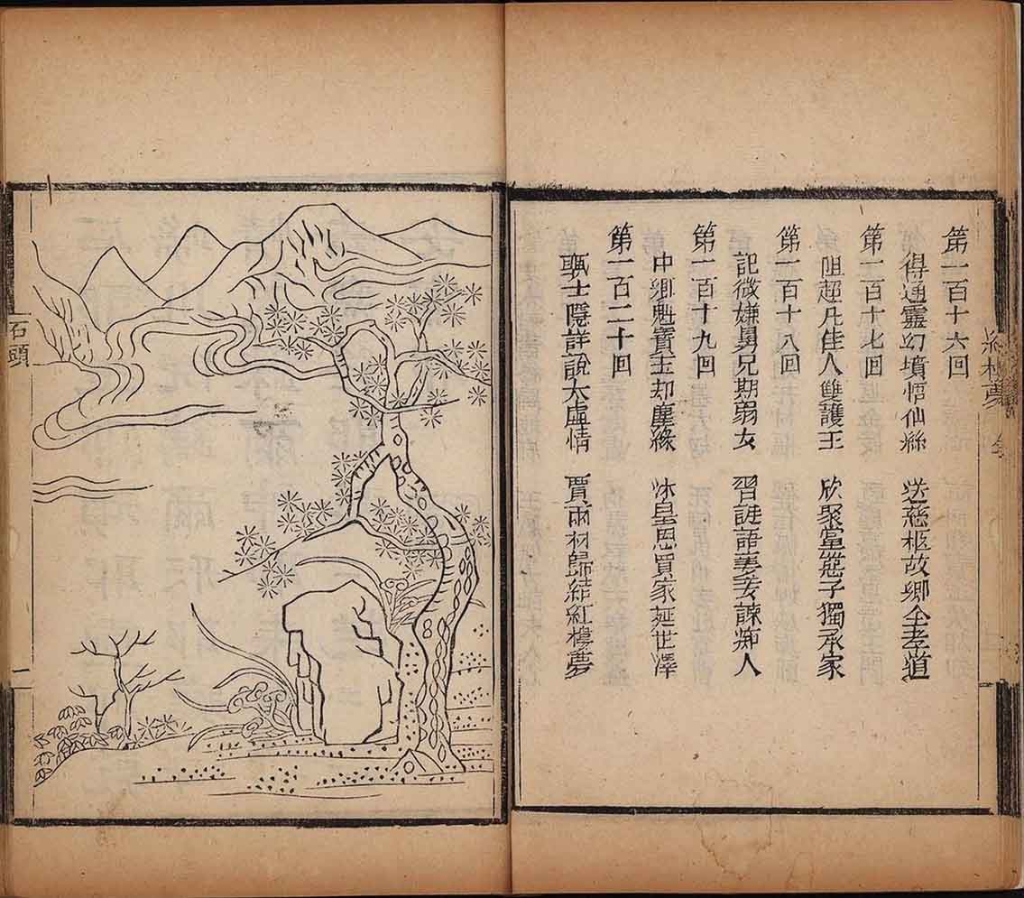 紅樓夢
第一百十六回
得通靈幻境悟仙緣　送慈柩故鄉全孝道
第一百十七回
阻超凡佳人雙護玉　欣聚黨惡子獨承家
第一百十八回
記微嫌舅兄欺弱女　警謎語妻妾諫痴人
第一百十九回
中鄉魁寶玉却塵緣　沐皇恩賈家延世澤
第一百二十回
甄士隱詳說太虛情　賈雨村歸結紅樓夢
石頭
一